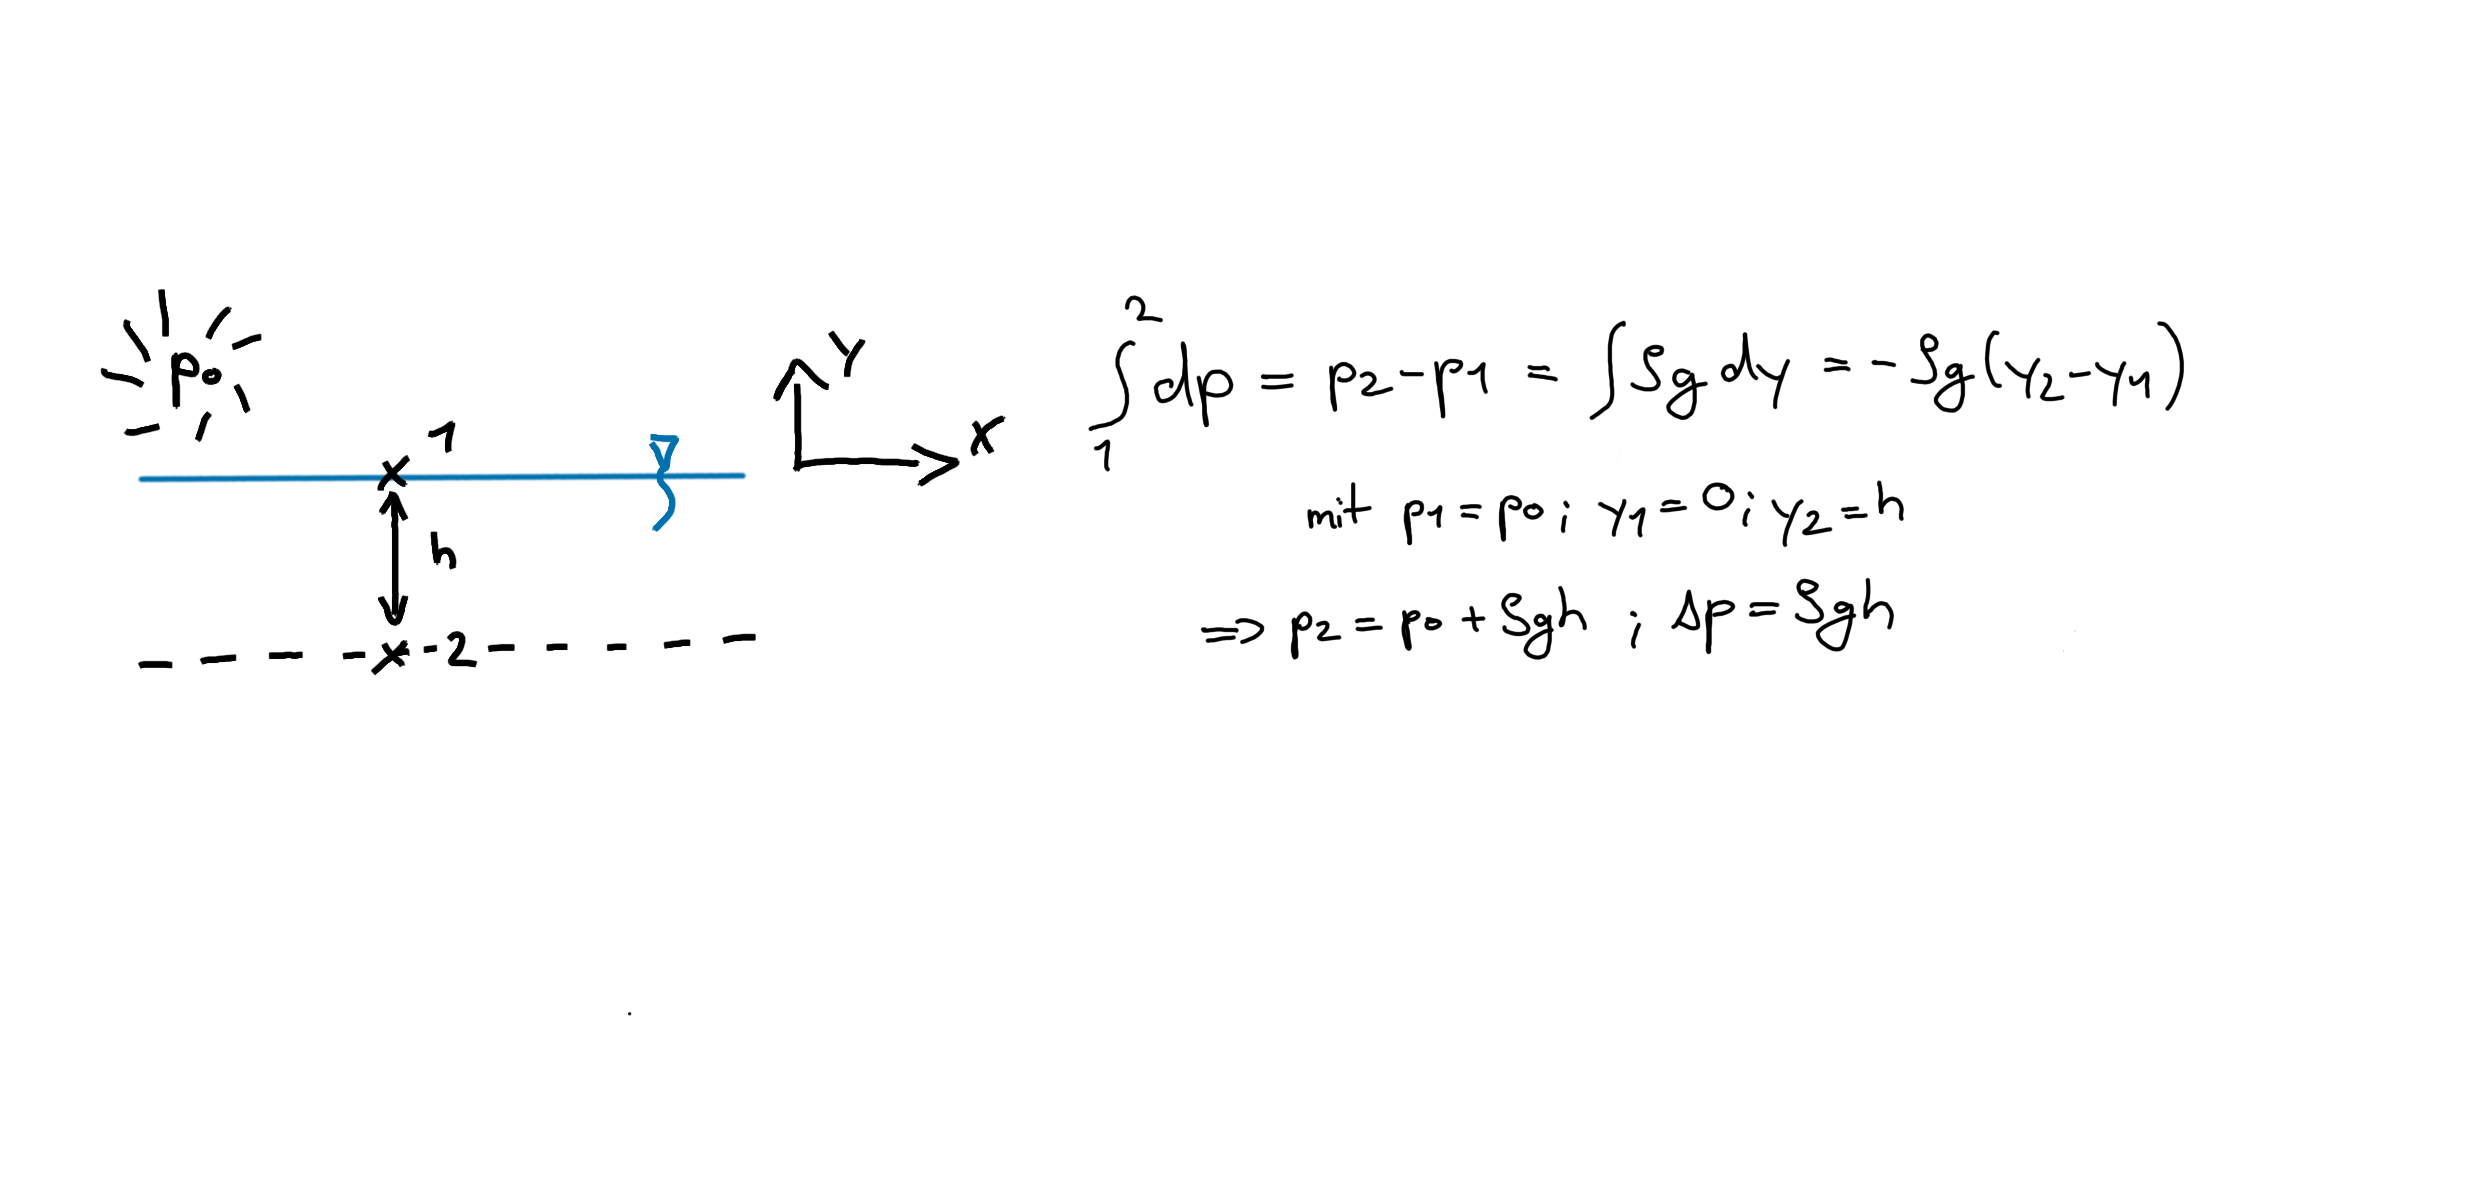 p₀
1
h
2
Y
X
∫₁² dp = p₂ - p₁ = ∫ ρg dy = - ρg (y₂ - y₁)
mit p₁ = p₀ ; y₁ = 0 ; y₂ = h
⇒ p₂ = p₀ + ρgh ; Δp = ρgh